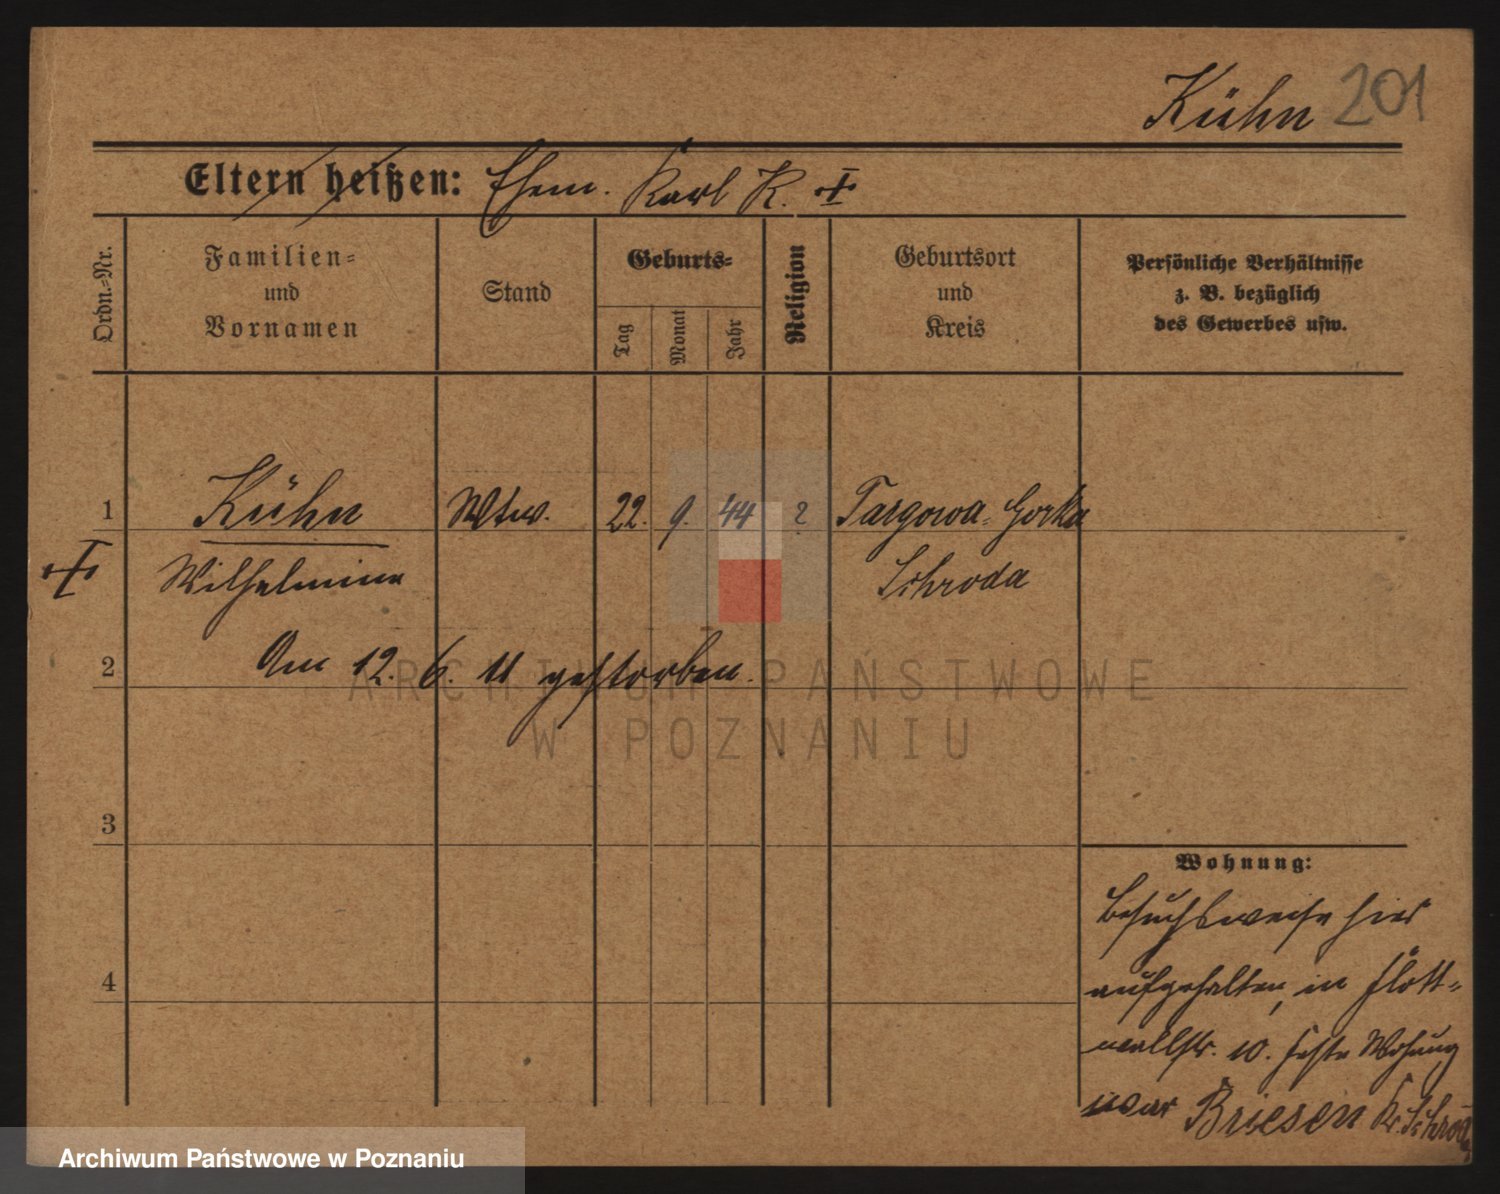 Kühn 201
Eltern heißen: Ehem. Karl K. ✝
Ordn.-Nr.
Familien-
und
Vornamen
Stand
Geburts-
Tag
Monat
Jahr
Religion
Geburtsort
und
Kreis
Persönliche Verhältnisse
z. B. bezüglich
des Gewerbes usw.
1 Kühn Wtw. 22. 9. 44 ? Targowa-Gorka
✝ Wilhelmine Schroda
2 Am 12. 6. 11 gestorben.
3
4
Wohnung:
Besuchsweise hier
aufgehalten, in Flott-
wellstr. 10. Feste Wohung
war Briesen Kr. Schroda
ARCHIWUM PAŃSTWOWE
W POZNANIU
Archiwum Państwowe w Poznaniu